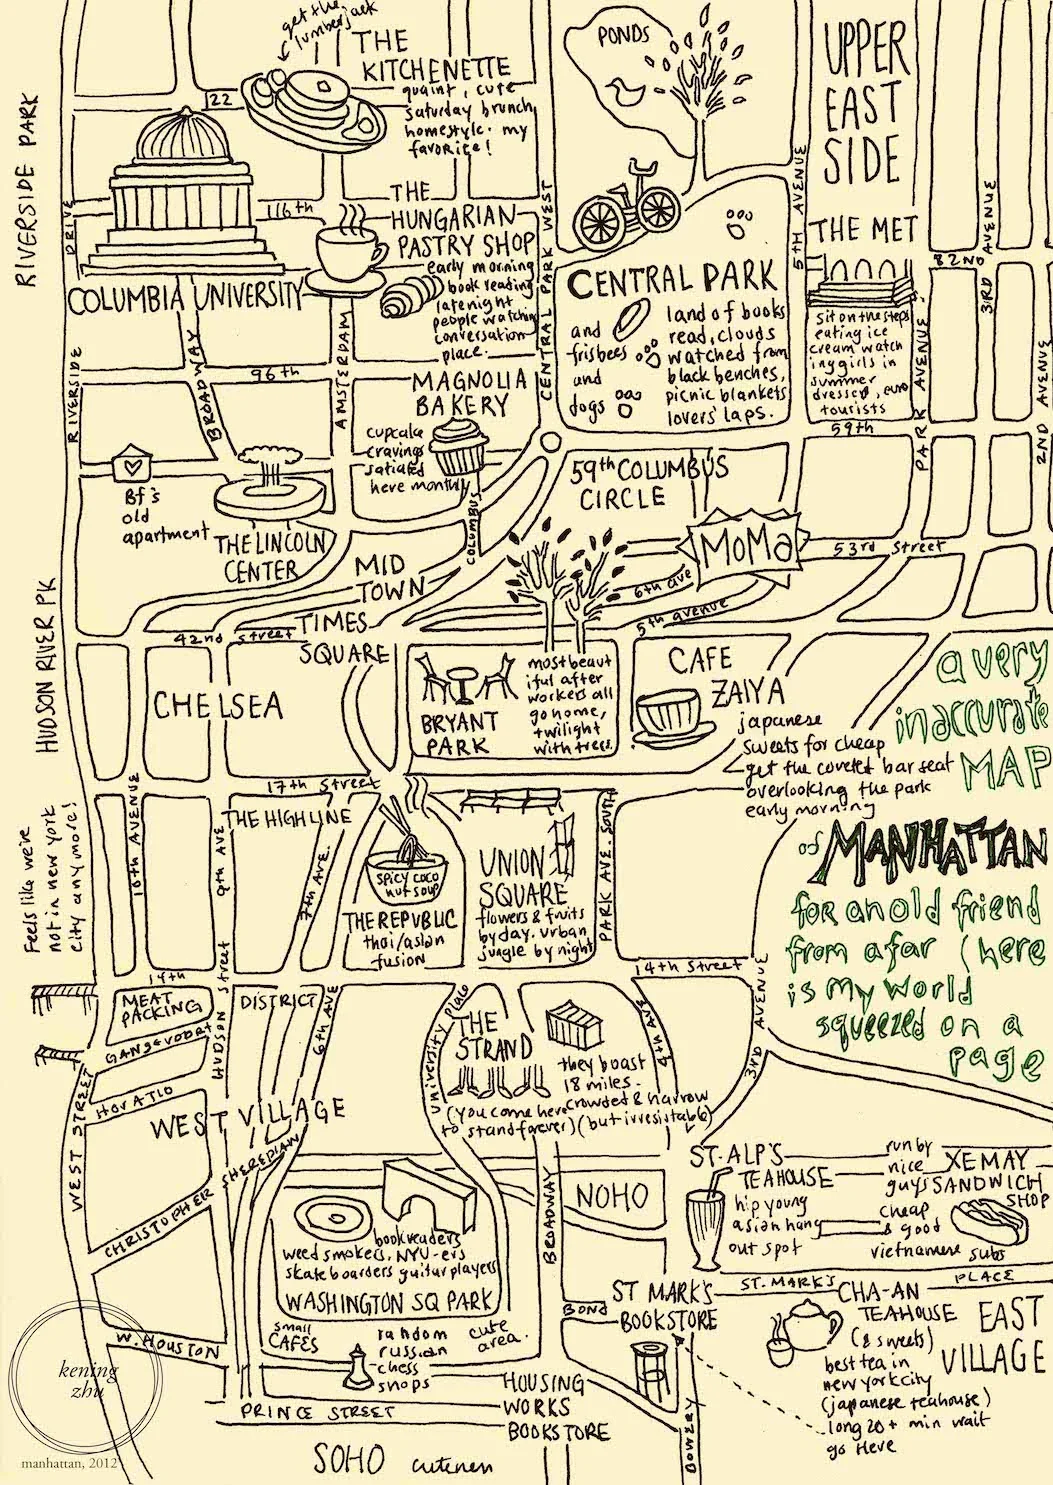 get the
lumberjack
THE
KITCHENETTE
quaint, cute
saturday brunch
homestyle. my
favorite!
PONDS
UPPER
EAST
SIDE
RIVERSIDE PARK
22
116th
THE
HUNGARIAN
PASTRY SHOP
early morning
book reading
late night
people watching
conversation
place.
COLUMBIA UNIVERSITY
RIVERSIDE
DRIVE
BROADWAY
AMSTERDAM
CENTRAL PARK WEST
5TH AVENUE
CENTRAL PARK
land of books
read, clouds
watched from
black benches,
picnic blankets
lovers' laps.
and
frisbees
and
dogs
THE MET
sit on the steps
eating ice
cream watch
ing girls in
summer
dresses, euro
tourists
82ND
3RD AVENUE
PARK AVENUE
2ND AVENUE
59th
96th
MAGNOLIA
BAKERY
cupcake
cravings
satiated
here monthly
COLUMBUS
59th COLUMBUS
CIRCLE
Bf's
old
apartment
THE LINCOLN
CENTER
MID
TOWN
MoMa
53rd Street
6th ave
5th avenue
HUDSON RIVER PK
42nd Street
TIMES
SQUARE
CHELSEA
BRYANT
PARK
most beaut
iful after
workers all
go home,
twilight
with trees.
CAFE
ZAIYA
japanese
sweets for cheap
get the coveted bar seat
overlooking the park
early morning
a very
inaccurate
MAP
of MANHATTAN
for an old friend
from afar (here
is my world
squeezed on a
page
17th Street
THE HIGHLINE
Feels like we're
not in new york
city any more!
10th AVENUE
9th AVE
7th AVE.
SPICY COCO
NUT SOUP
THE REPVBLIC
thai/asian
fusion
UNION
SQUARE
flowers & fruits
by day. urban
jungle by night
PARK AVE. SOUTH
14th
14th Street
MEAT
PACKING
DISTRICT
GANSEVOORT
HORATIO
HUDSON Street
WEST STREET
6th AVE
University Place
THE
STRAND
they boast
18 miles.
crowded & narrow
(but irresistable)
(you come here
to stand forever)
4th AVE
3RD AVENUE
WEST VILLAGE
CHRISTOPHER
SHEREDIAN
book readers
weed smokers, NYU-ers
skate boarders guitar players
WASHINGTON SQ PARK
BROADWAY
NOHO
ST. ALP'S
TEAHOUSE
hip young
asian hang
out spot
run by
nice
guys
cheap
& good
vietnamese subs
XE MAY
SANDWICH
SHOP
ST. MARK'S PLACE
ST MARK'S
BOOKSTORE
BOND
CHA-AN
TEAHOUSE
(& sweets)
best tea in
new york city
(japanese teahouse)
long 20+ min wait
go Here
EAST
VILLAGE
small
CAFES
random
russian
chess
shops
cute
area.
W. HOUSTON
PRINCE STREET
HOUSING
WORKS
BOOKSTORE
BOWERY
SOHO
kening
zhu
manhattan, 2012